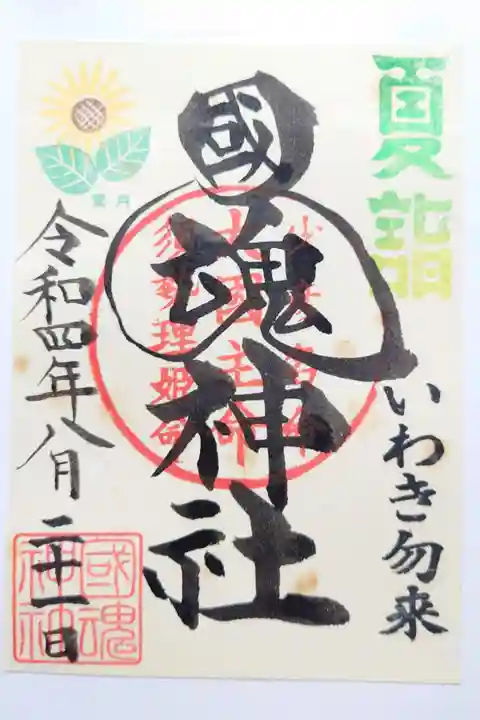 夏詣
いわき勿来
國魂神社
少彦名命
大國主命
須勢理姫命
葉月
令和四年八月二十一日
國魂
神社